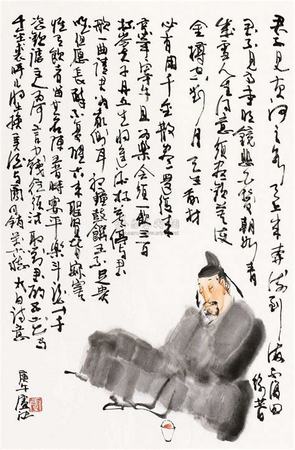 君不見黄河之水天上來奔流到海不復回
君不見高堂明鏡悲白髮朝如青
成雪人生得意須盡歡莫使
金樽空對月天生我材
必有用千金散盡還復來
烹羊宰牛且爲樂會須一飲三百
杯岑夫子丹丘生將進酒杯莫停與君
歌一曲請君爲我傾耳聽鐘鼓饌玉不足貴
但願長醉不復醒古來聖賢皆寂寞
惟有飲者留其名陳王昔時宴平樂斗酒十千
恣歡謔主人何爲言少錢徑須沽取對君酌五花馬
千金裘呼兒將出換美酒與爾同銷萬古愁 太白詩意
庚午盧沉